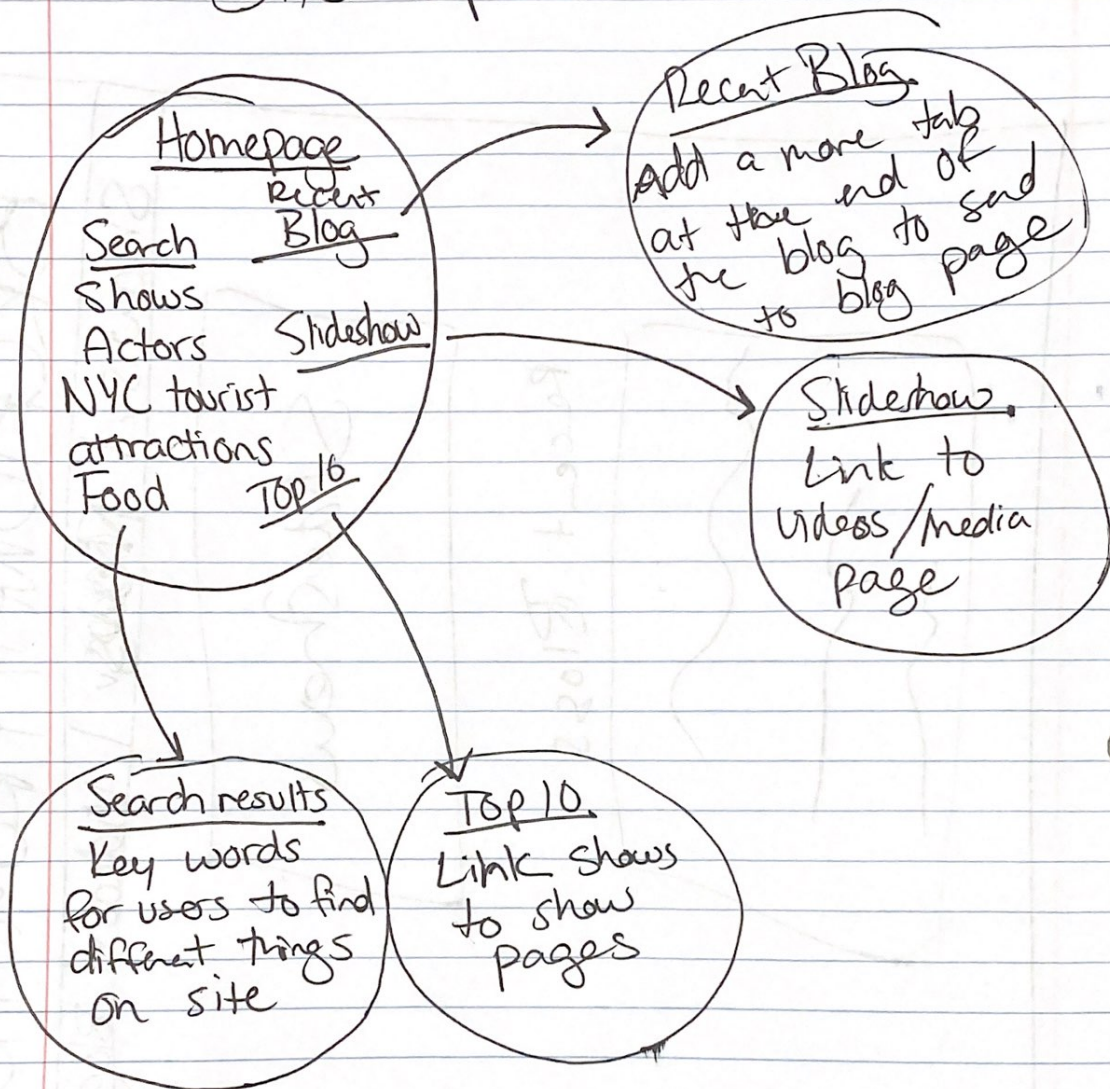 Homepage
Recent
Blog
Search
Shows
Actors
NYC tourist
attractions
Food
Slideshow
Top 10
Recent Blog
Add a more tab
at the end of
the blog to send
to blog page
Slideshow
Link to
videos/media
page
Search results
Key words
for users to find
different things
on site
Top 10
Link shows
to show
pages